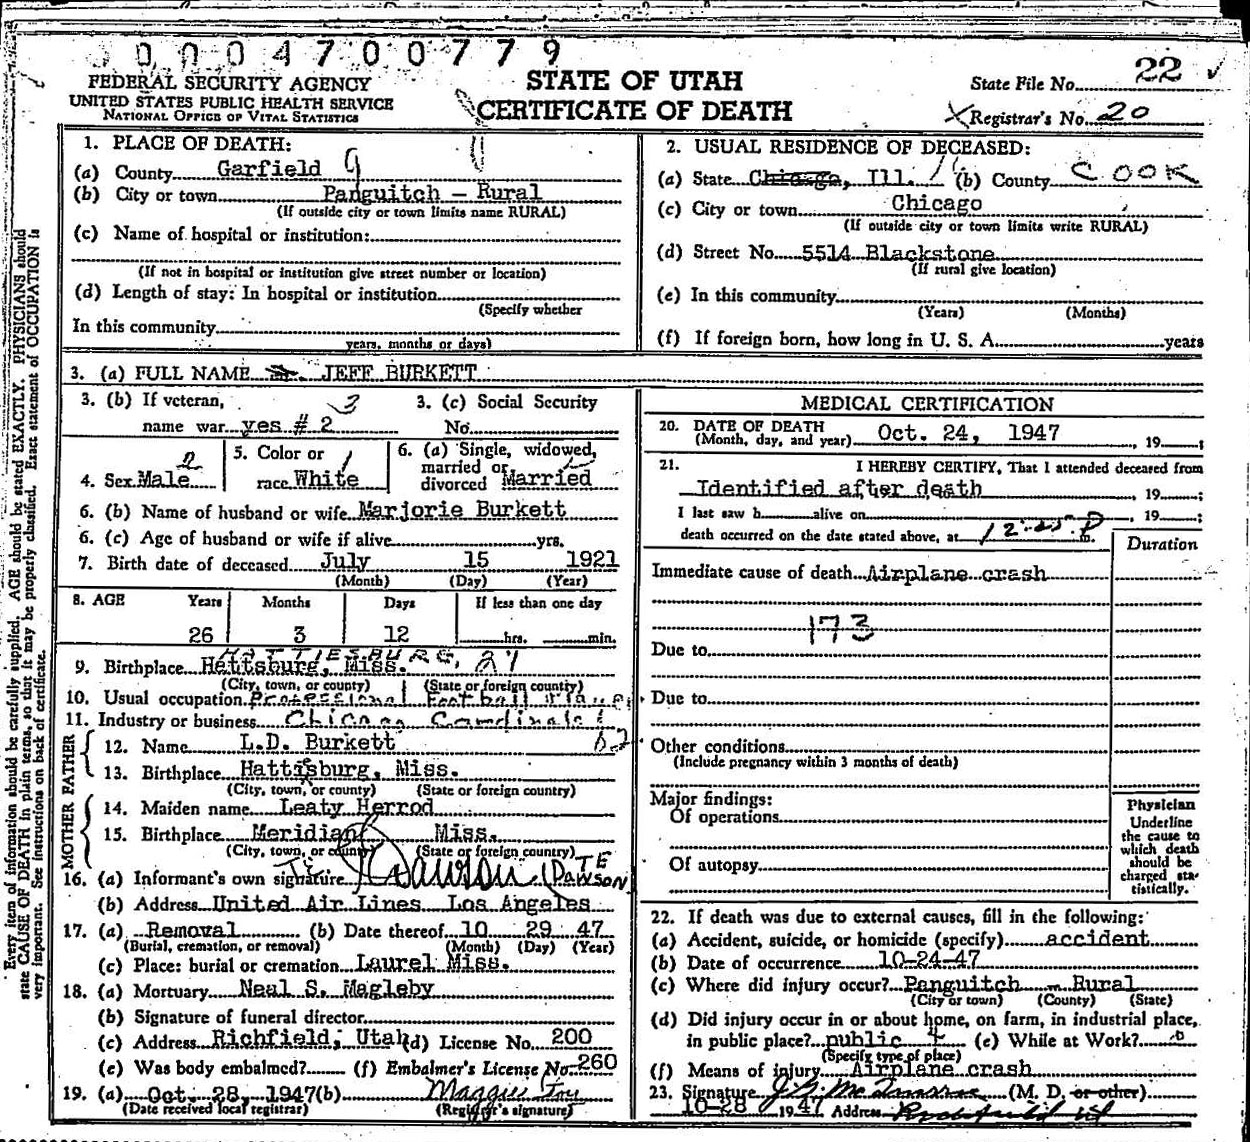 0 0 0 4 7 0 0 7 7 9
FEDERAL SECURITY AGENCY
UNITED STATES PUBLIC HEALTH SERVICE
NATIONAL OFFICE OF VITAL STATISTICS
STATE OF UTAH
CERTIFICATE OF DEATH
State File No. 22
Registrar's No. 20
1. PLACE OF DEATH:
(a) County Garfield
(b) City or town Panguitch - Rural
(If outside city or town limits name RURAL)
(c) Name of hospital or institution:
(If not in hospital or institution give street number or location)
(d) Length of stay: In hospital or institution
(Specify whether
In this community
years, months or days)
2. USUAL RESIDENCE OF DECEASED:
(a) State Chicago, Ill. (b) County COOK
(c) City or town Chicago
(If outside city or town limits write RURAL)
(d) Street No. 5514 Blackstone
(If rural give location)
(e) In this community
(Years) (Months)
(f) If foreign born, how long in U. S. A. years
3. (a) FULL NAME JEFF BURKETT
3. (b) If veteran, 3
name war yes # 2
3. (c) Social Security
No.
4. Sex Male 2
5. Color or
race White 1
6. (a) Single, widowed,
married or
divorced Married
6. (b) Name of husband or wife Marjorie Burkett
6. (c) Age of husband or wife if alive yrs.
7. Birth date of deceased July 15 1921
(Month) (Day) (Year)
8. AGE Years Months Days If less than one day
26 3 12 hrs. min.
HATTIESBURG,
9. Birthplace Hettsburg, Miss. 24
(City, town, or county) (State or foreign country)
10. Usual occupation Professional Football Player
11. Industry or business Chicago Cardinals
FATHER
12. Name L.D. Burkett
13. Birthplace Hattisburg, Miss.
(City, town, or county) (State or foreign country)
MOTHER
14. Maiden name Leaty Herrod
15. Birthplace Meridian Miss.
(City, town, or county) (State or foreign country)
16. (a) Informant's own signature Dawson (TE DAWSON)
(b) Address United Air Lines Los Angeles
17. (a) Removal (b) Date thereof 10 29 47
(Burial, cremation, or removal) (Month) (Day) (Year)
(c) Place: burial or cremation Laurel Miss.
18. (a) Mortuary Neal S. Magleby
(b) Signature of funeral director
(c) Address Richfield, Utah (d) License No. 200
(e) Was body embalmed? (f) Embalmer's License No. 260
19. (a) Oct. 28, 1947 (b) Maggie
(Date received local registrar) (Registrar's signature)
MEDICAL CERTIFICATION
20. DATE OF DEATH
(Month, day, and year) Oct. 24, 1947, 19 ;
21. I HEREBY CERTIFY, That I attended deceased from
Identified after death, 19 ;
I last saw h alive on, 19 ;
death occurred on the date stated above, at 12:25 P m.
Duration
Immediate cause of death Airplane crash
173
Due to
Due to
Other conditions
(Include pregnancy within 3 months of death)
Major findings:
Of operations
Of autopsy
Physician
Underline
the cause to
which death
should be
charged sta-
tistically.
22. If death was due to external causes, fill in the following:
(a) Accident, suicide, or homicide (specify) accident
(b) Date of occurrence 10-24-47
(c) Where did injury occur? Panguitch - Rural
(City or town) (County) (State)
(d) Did injury occur in or about home, on farm, in industrial place,
in public place? public 4 (e) While at Work?
(Specify type of place)
(f) Means of injury Airplane crash
23. Signature (M. D. or other)
10-28 1947 Address
Every item of information should be carefully supplied. AGE should be stated EXACTLY. PHYSICIANS should
state CAUSE OF DEATH in plain terms, so that it may be properly classified. Exact statement of OCCUPATION is
very important. See instructions on back of certificate.